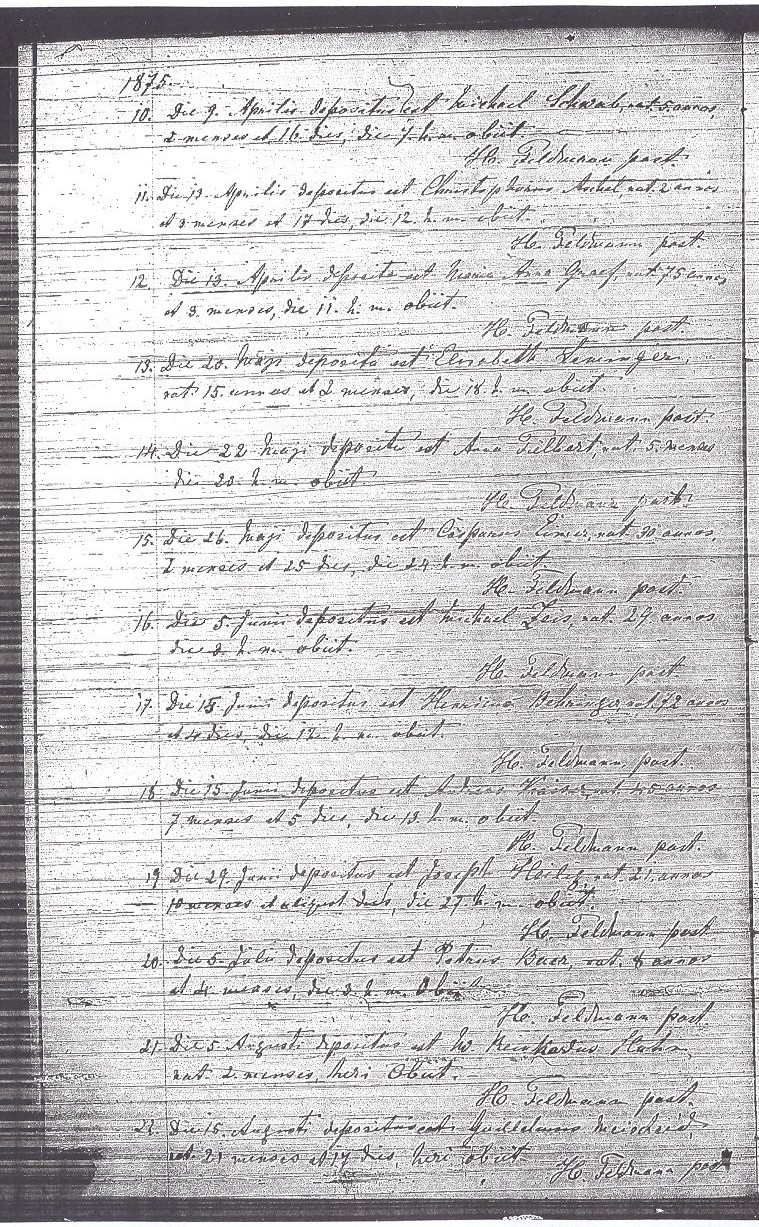 1875.
10. Die 9. Aprilis depositus est Michael Schwab, nat. 5 annos,
2 menses et 16 dies, die 7. h. m. obiit.
H. Feldmann past.
11. Die 13. Aprilis depositus est Christophorus nat. 2 annos
et 3 menses et 17 dies, die 12. h. m. obiit.
H. Feldmann past.
12. Die 13. Aprilis deposita est Maria Anna Graef, nat. 75 annos
et 3. menses, die 11. h. m. obiit.
H. Feldmann past.
13. Die 20. Maji deposita est Elisabeth
nat. 15. annos et 2 menses, die 18. h. m. obiit.
H. Feldmann past.
14. Die 22 Maji deposita est Anna nat. 5. menses
die 20. h. m. obiit
H. Feldmann past.
15. Die 26. Maji depositus est Casparus nat. 30 annos,
2 menses et 25 dies, die 24 h. m. obiit.
H. Feldmann past.
16. Die 5. Junii depositus est Michael Zeis, nat. 29. annos
die 3. h. m. obiit.
H. Feldmann past.
17. Die Junii depositus est Henricus Behringer, nat. 72 annos
et 4 dies, die 12. h. m. obiit.
H. Feldmann, past.
18. Die 15. Junii depositus est Andreas Kaiser, nat. 45 annos
7 menses et 5 dies, die 13. h. m. obiit.
H. Feldmann past.
19. Die 29. Junii depositus est Joseph Heilig, nat. 21. annos
10 menses et dies, die 27 h. m. obiit.
H. Feldmann past.
20. Die 5. Julii depositus est Petrus Baer, nat. 8 annos
et 4 menses, die 3. h. m. Obiit
H. Feldmann past.
21. Die 5. Augusti depositus est Hahn,
nat. 2. menses, heri Obiit.
H. Feldmann past.
22. Die 15. Augusti depositus est Guillelmus
nat. 21 menses et 17 dies, heri obiit
H. Feldmann past